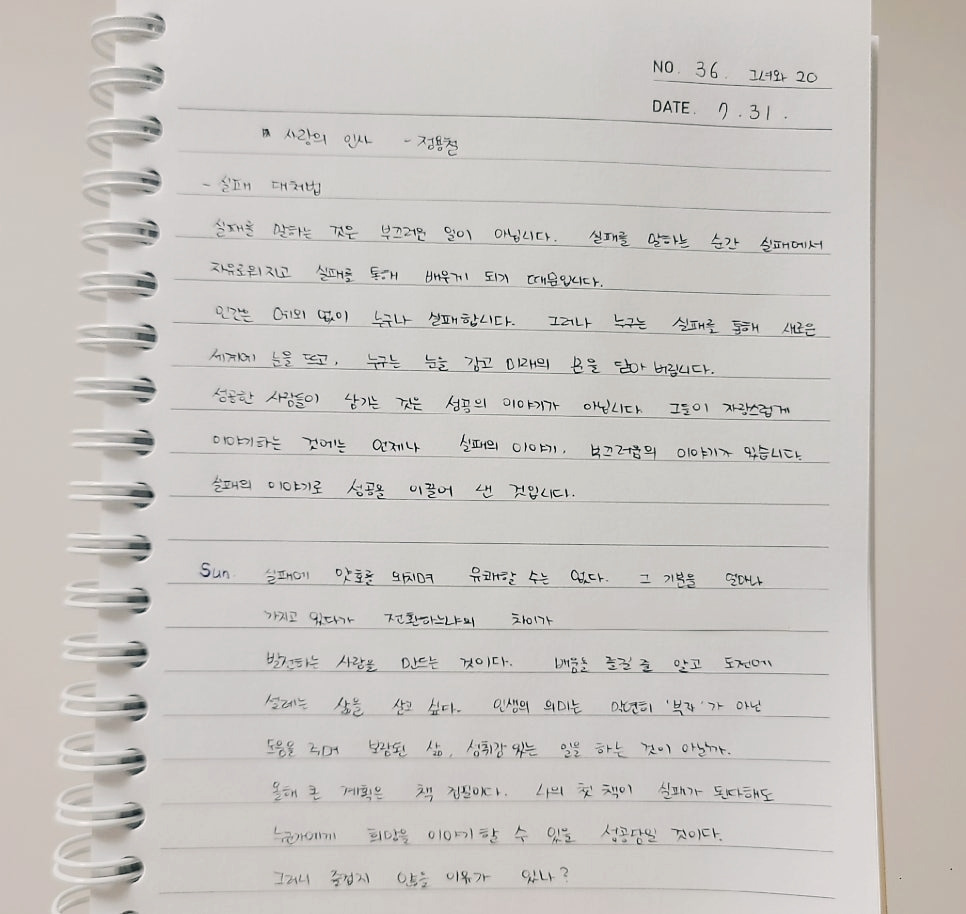 NO. 36. 그녀와 20
DATE. 7. 31.
사랑의 인사 - 정용철
- 실패 대처법
실패를 말하는 것은 부끄러운 일이 아닙니다. 실패를 말하는 순간 실패에서
자유로워지고 실패를 통해 배우게 되기 때문입니다.
인간은 예외 없이 누구나 실패합니다. 그러나 누구는 실패를 통해 새로운
세계에 눈을 뜨고, 누구는 눈을 감고 미래의 문을 닫아 버립니다.
성공한 사람들이 남기는 것은 성공의 이야기가 아닙니다. 그들이 자랑스럽게
이야기하는 것에는 언제나 실패의 이야기, 부끄러움의 이야기가 있습니다.
실패의 이야기로 성공을 이끌어 낸 것입니다.
Sun. 실패에 앗호를 외치며 유쾌할 수는 없다. 그 기분을 얼마나
가지고 있다가 전환하느냐의 차이가
발전하는 사람을 만드는 것이다. 배움을 즐길 줄 알고 도전에
설레는 삶을 살고 싶다. 인생의 의미는 막연히 '부자'가 아닌
도움을 주며 보람된 삶, 성취감 있는 일을 하는 것이 아닐까.
올해 큰 계획은 책 집필이다. 나의 첫 책이 실패가 된다해도
누군가에게 희망을 이야기 할 수 있을 성공담일 것이다.
그러니 즐겁지 않을 이유가 있나?